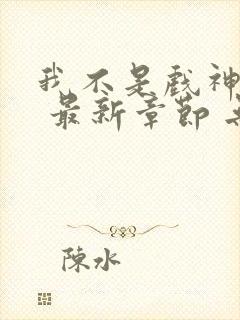 我不是戲神
最新章節
陳水